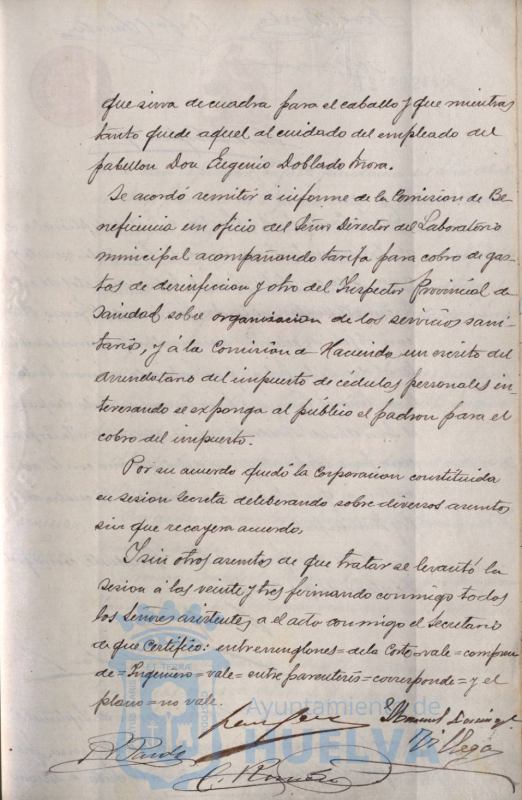 que sirva de cuadra para el caballo y que mientras
tanto quede aquel al cuidado del empleado del
pabellon Don Eugenio Doblado Mora.
Se acordó remitir á informe de la Comision de Be-
neficencia un oficio del Señor Director del Laboratorio
municipal acompañando tarifa para cobro de gas-
tos de desinfeccion y otro del Inspector Provincial de
Sanidad sobre organizacion de los servicios sani-
tarios, y á la Comision de Hacienda un escrito del
arrendatario del impuesto de cédulas personales in-
teresando se exponga al público el padron para el
cobro del impuesto.
Por su acuerdo quedó la Corporacion constituida
en sesion secreta deliberando sobre diversos asuntos
sin que recayera acuerdo.
Y sin otros asuntos de que tratar se levantó la
sesion á las veinte y tres firmando conmigo todos
los Señores asistentes a el acto conmigo el Secretario
de que Certifico: entrerrenglones = de la Corte = vale = compren
de = Ingeniero = vale = entre parentesis = corresponde = y el
plano = no vale.
Manuel Doming
Villega
A. Pardo
C. Romero
Ayuntamiento de
HUELVA